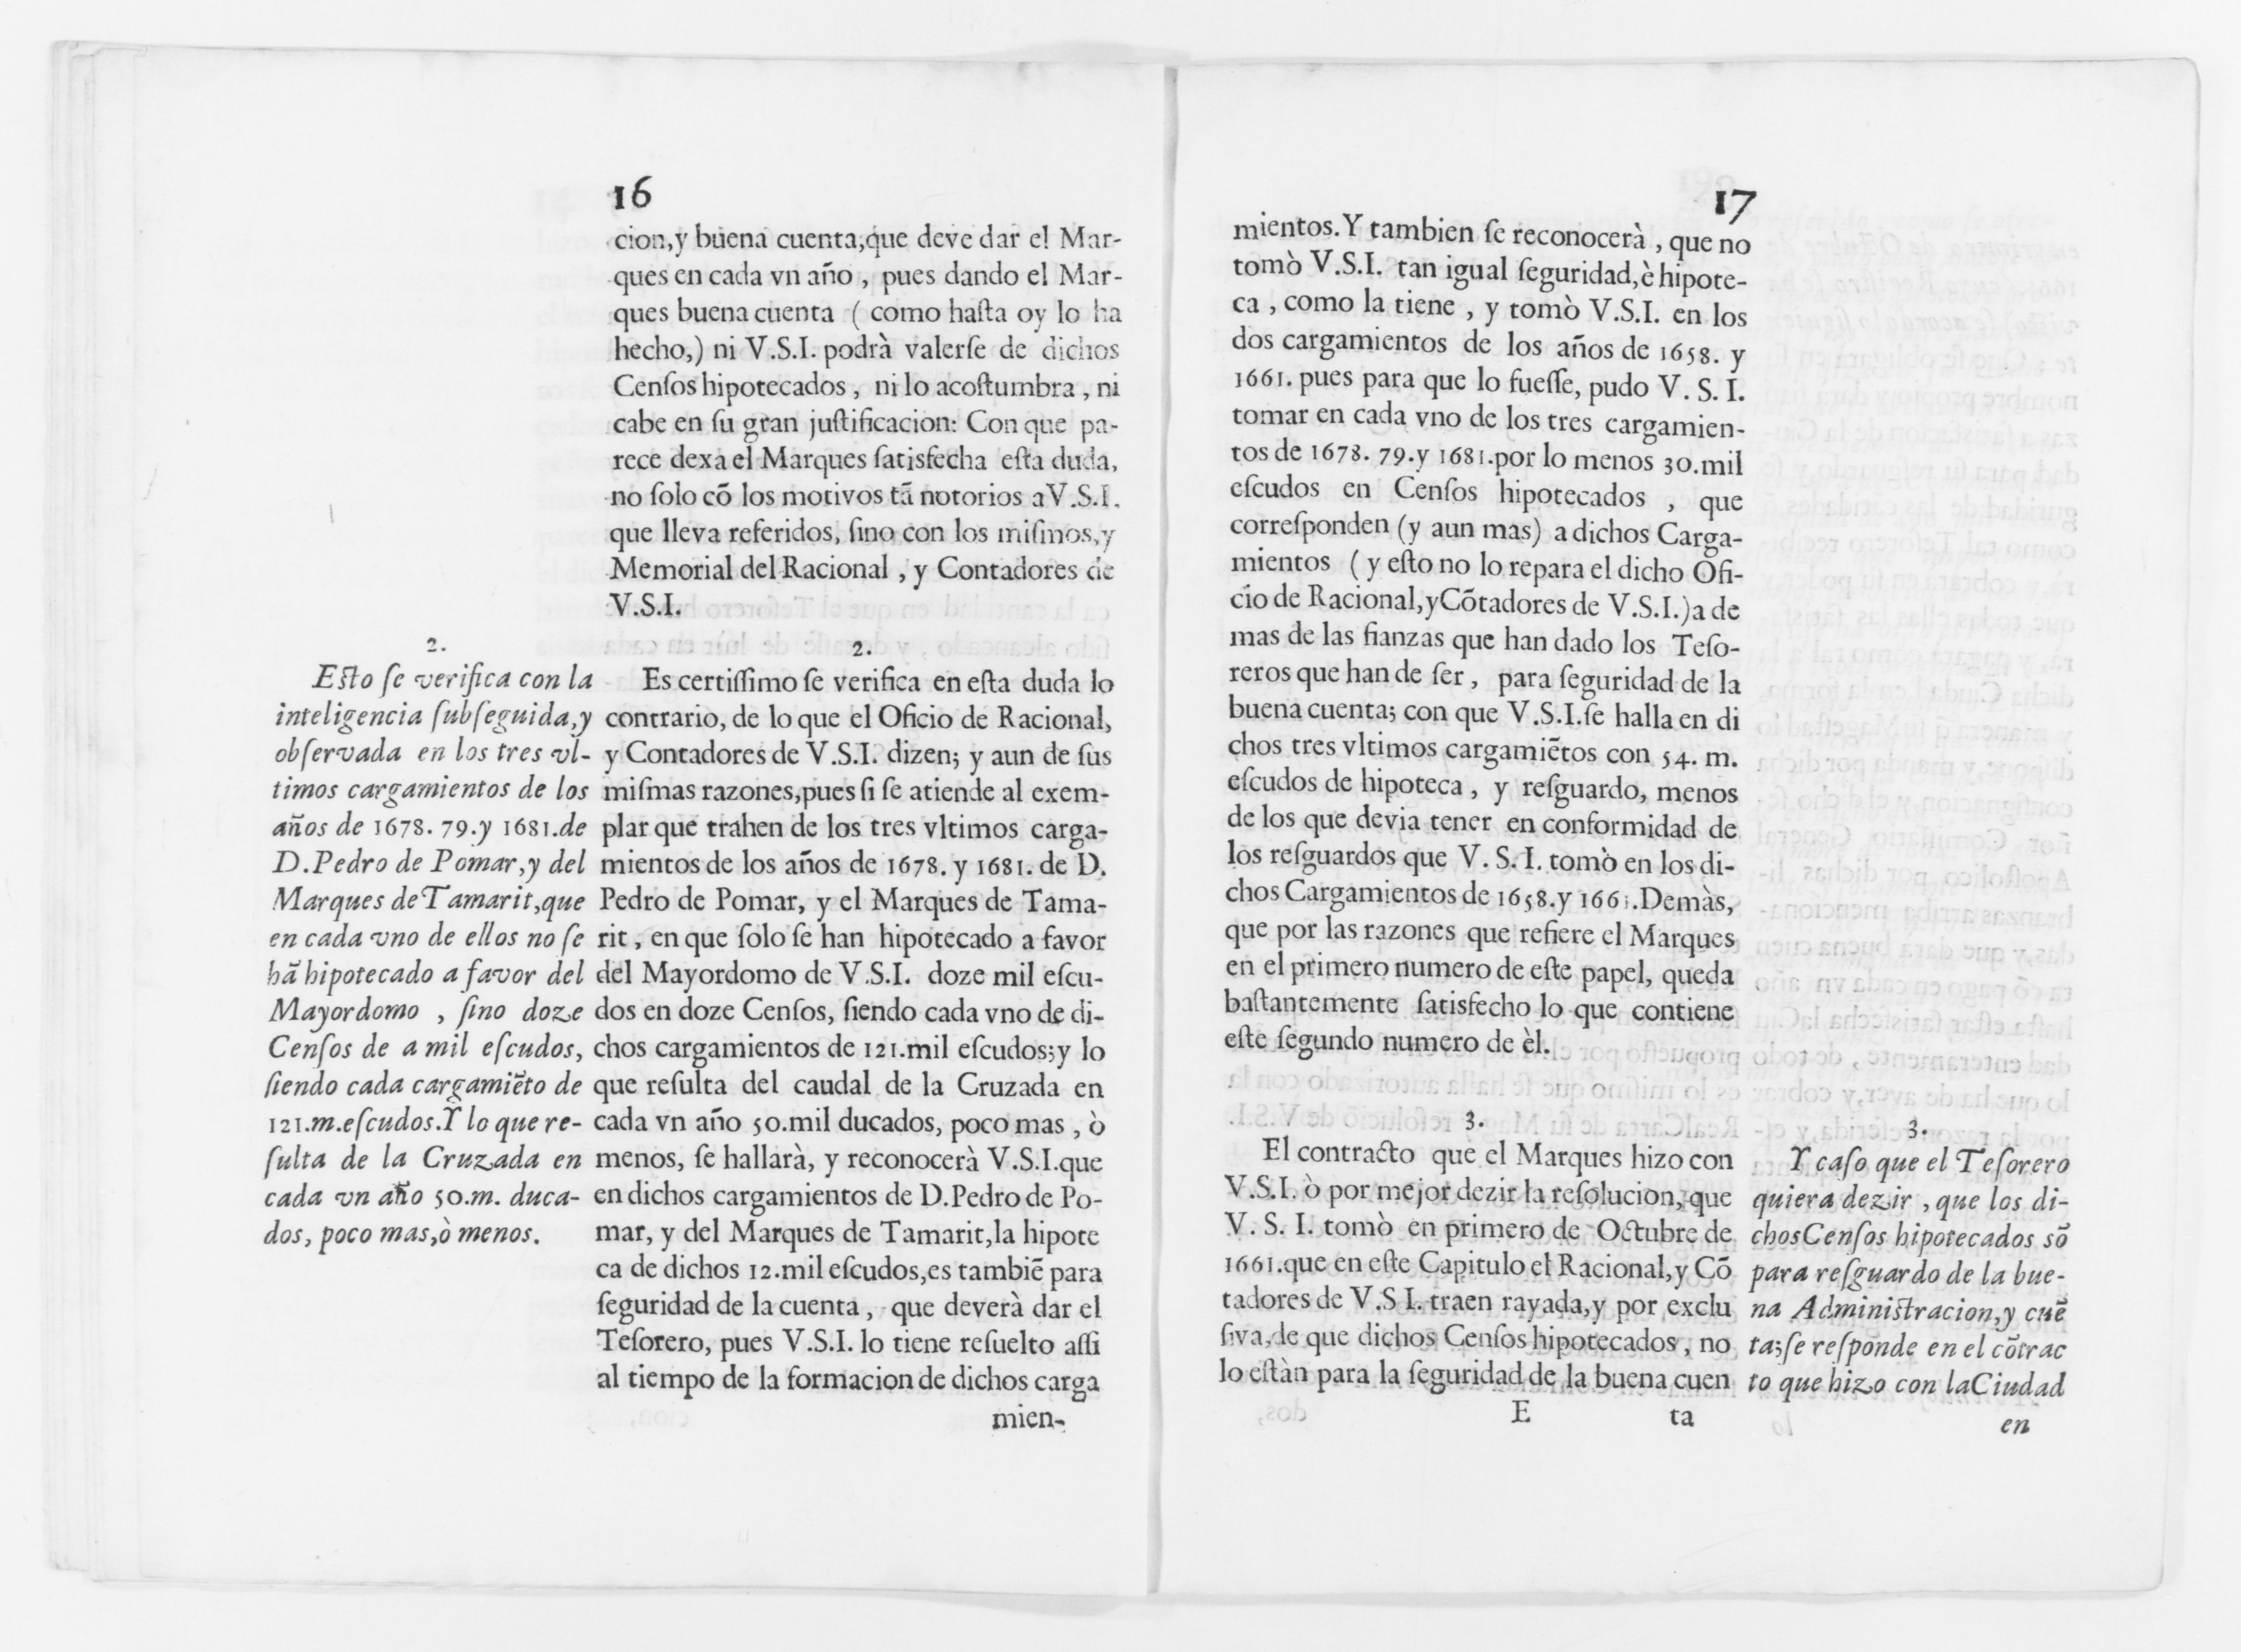 16
cion,y buena cuenta,que deve dar el Mar-
ques en cada vn año , pues dando el Mar-
ques buena cuenta ( como haſta oy lo ha
hecho,) ni V.S.I. podrà valerſe de dichos
Cenſos hipotecados , ni lo acoſtumbra , ni
cabe en ſu gran juſtificacion: Con que pa-
rece dexa el Marques ſatisfecha eſta duda,
no ſolo cõ los motivos tã notorios a V.S.I.
que lleva referidos, ſino con los miſmos,y
Memorial del Racional , y Contadores de
V.S.I.
2.
Eſto ſe verifica con la
inteligencia ſubſeguida,y
obſervada en los tres vl-
timos cargamientos de los
años de 1678. 79.y 1681.de
D.Pedro de Pomar,y del
Marques de Tamarit,que
en cada vno de ellos no ſe
hã hipotecado a favor del
Mayordomo , ſino doze
Cenſos de a mil eſcudos,
ſiendo cada cargamiẽto de
121.m.eſcudos.Y lo que re-
ſulta de la Cruzada en
cada vn año 50.m. duca-
dos, poco mas,ò menos.
2.
Es certiſſimo ſe verifica en eſta duda lo
contrario, de lo que el Oficio de Racional,
y Contadores de V.S.I. dizen; y aun de ſus
miſmas razones,pues ſi ſe atiende al exem-
plar que trahen de los tres vltimos carga-
mientos de los años de 1678. y 1681. de D.
Pedro de Pomar, y el Marques de Tama-
rit , en que ſolo ſe han hipotecado a favor
del Mayordomo de V.S.I. doze mil eſcu-
dos en doze Cenſos, ſiendo cada vno de di-
chos cargamientos de 121.mil eſcudos;y lo
que reſulta del caudal de la Cruzada en
cada vn año 50.mil ducados, poco mas , ò
menos, ſe hallarà, y reconocerà V.S.I.que
en dichos cargamientos de D.Pedro de Po-
mar, y del Marques de Tamarit,la hipote
ca de dichos 12.mil eſcudos,es tambiẽ para
ſeguridad de la cuenta , que deverà dar el
Teſorero, pues V.S.I. lo tiene reſuelto aſſi
al tiempo de la formacion de dichos carga
mien-
17
mientos. Y tambien ſe reconocerà , que no
tomò V.S.I. tan igual ſeguridad,è hipote-
ca , como la tiene , y tomò V.S.I. en los
dos cargamientos de los años de 1658. y
1661. pues para que lo fueſſe, pudo V. S. I.
tomar en cada vno de los tres cargamien-
tos de 1678. 79.y 1681.por lo menos 30.mil
eſcudos en Cenſos hipotecados , que
correſponden (y aun mas) a dichos Carga-
mientos ( y eſto no lo repara el dicho Ofi-
cio de Racional,y Cõtadores de V.S.I.)a de
mas de las fianzas que han dado los Teſo-
reros que han de ſer , para ſeguridad de la
buena cuenta; con que V.S.I.ſe halla en di
chos tres vltimos cargamiẽtos con 54. m.
eſcudos de hipoteca , y reſguardo, menos
de los que devia tener en conformidad de
los reſguardos que V. S. I. tomò en los di-
chos Cargamientos de 1658.y 1661.Demàs,
que por las razones que refiere el Marques
en el primero numero de eſte papel, queda
baſtantemente ſatisfecho lo que contiene
eſte ſegundo numero de èl.
3.
El contracto que el Marques hizo con
V.S.I. ò por mejor dezir la reſolucion, que
V. S. I. tomò en primero de Octubre de
1661.que en eſte Capitulo el Racional,y Cõ
tadores de V.S I. traen rayada,y por exclu
ſiva,de que dichos Cenſos hipotecados , no
lo eſtàn para la ſeguridad de la buena cuen
E
ta
3.
Y caſo que el Teſorero
quiera dezir , que los di-
chos Cenſos hipotecados sõ
para reſguardo de la bue-
na Adminiſtracion,y cuẽ
ta;ſe reſponde en el cõtrac
to que hizo con la Ciudad
en